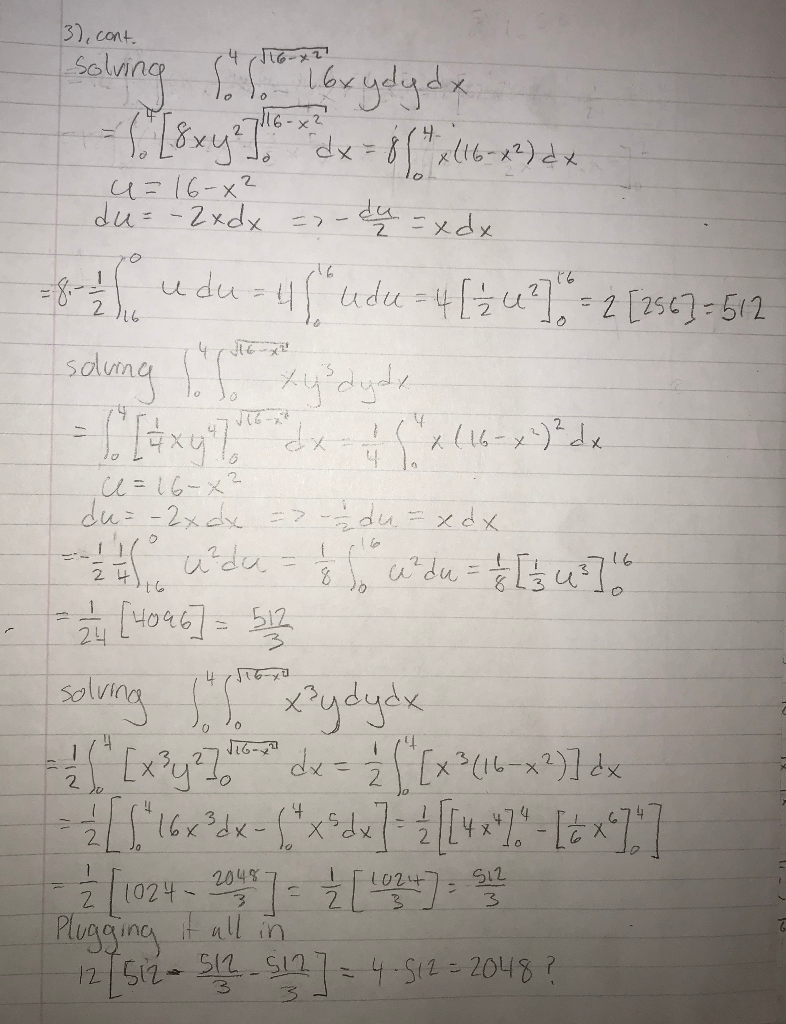 3), cont.
solving ∫₀⁴ ∫₀^√(16-x²) 16xydydx
= ∫₀⁴ [8xy²]₀^√(16-x²) dx = 8∫₀⁴ x(16-x²)dx
u = 16-x²
du = -2xdx => -du/2 = xdx
= 8·-1/2 ∫₁₆⁰ u du = 4∫₀¹⁶ udu = 4[1/2 u²]₀¹⁶ = 2[256] = 512
solving ∫₀⁴ ∫₀^√(16-x²) xy³dydx
= ∫₀⁴ [1/4 xy⁴]₀^√(16-x²) dx = 1/4 ∫₀⁴ x(16-x²)² dx
u = 16-x²
du = -2xdx => -1/2 du = xdx
= -1/2 1/4 ∫₁₆⁰ u²du = 1/8 ∫₀¹⁶ u²du = 1/8 [1/3 u³]₀¹⁶
= 1/24 [4096] = 512/3
solving ∫₀⁴ ∫₀^√(16-x²) x³ydydx
= 1/2 ∫₀⁴ [x³y²]₀^√(16-x²) dx = 1/2 ∫₀⁴ [x³(16-x²)]dx
= 1/2 [∫₀⁴ 16x³dx - ∫₀⁴ x⁵dx] = 1/2 [[4x⁴]₀⁴ - [1/6 x⁶]₀⁴]
= 1/2 [1024 - 2048/3] = 1/2 [1024/3] = 512/3
Plugging it all in
12[512 - 512/3 - 512/3] = 4·512 = 2048?